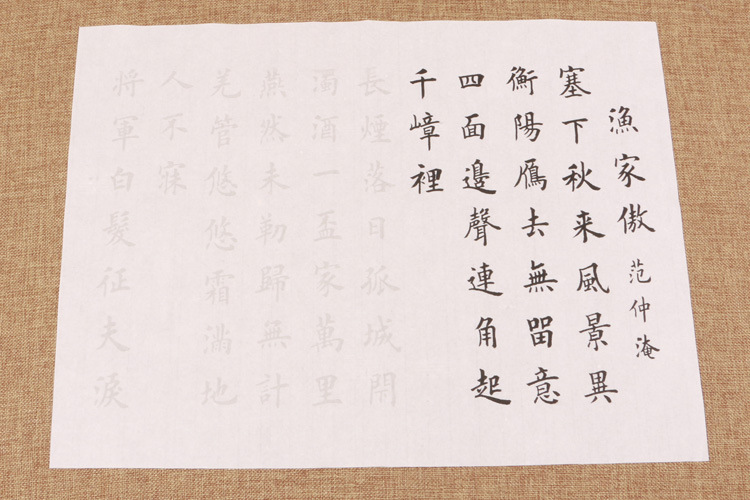 漁家傲 范仲淹
塞下秋来風景異
衡陽鴈去無留意
四面邊聲連角起
千嶂裡
長煙落日孤城閉
濁酒一盃家萬里
燕然未勒歸無計
羌管悠悠霜滿地
人不寐
将軍白髮征夫淚